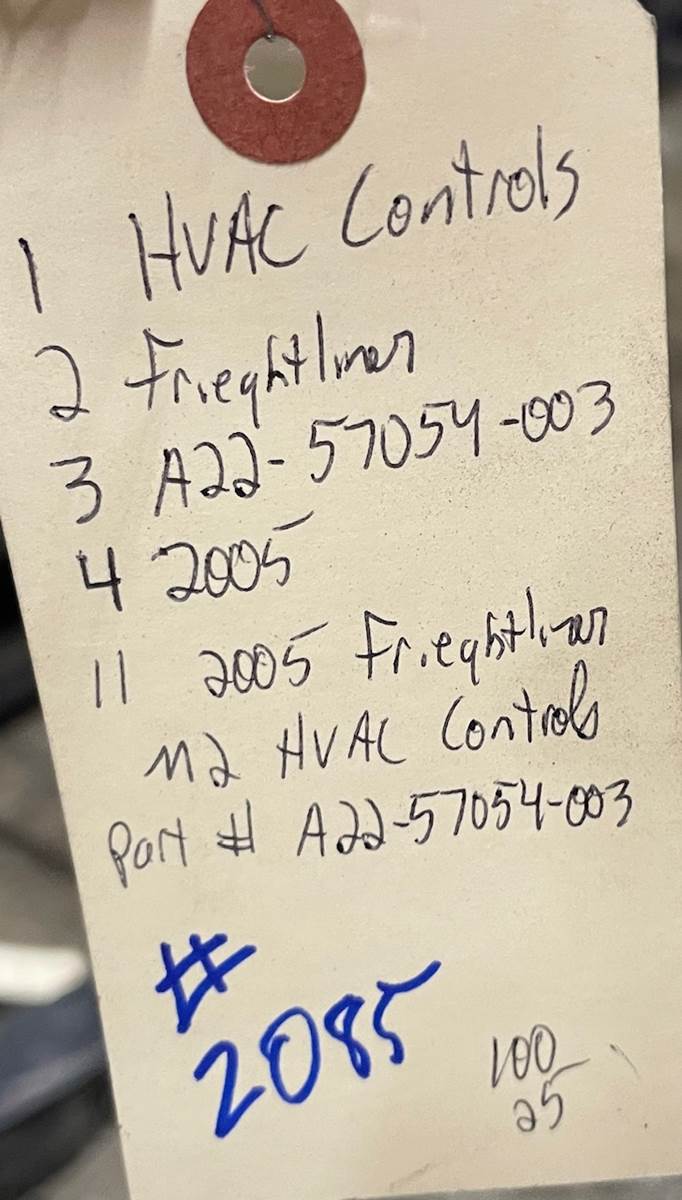 1 HVAC Controls
2 Frieghtliner
3 A22-57054-003
4 2005
11 2005 Frieghtliner
M2 HVAC Controls
Part # A22-57054-003
#
2085
100
25